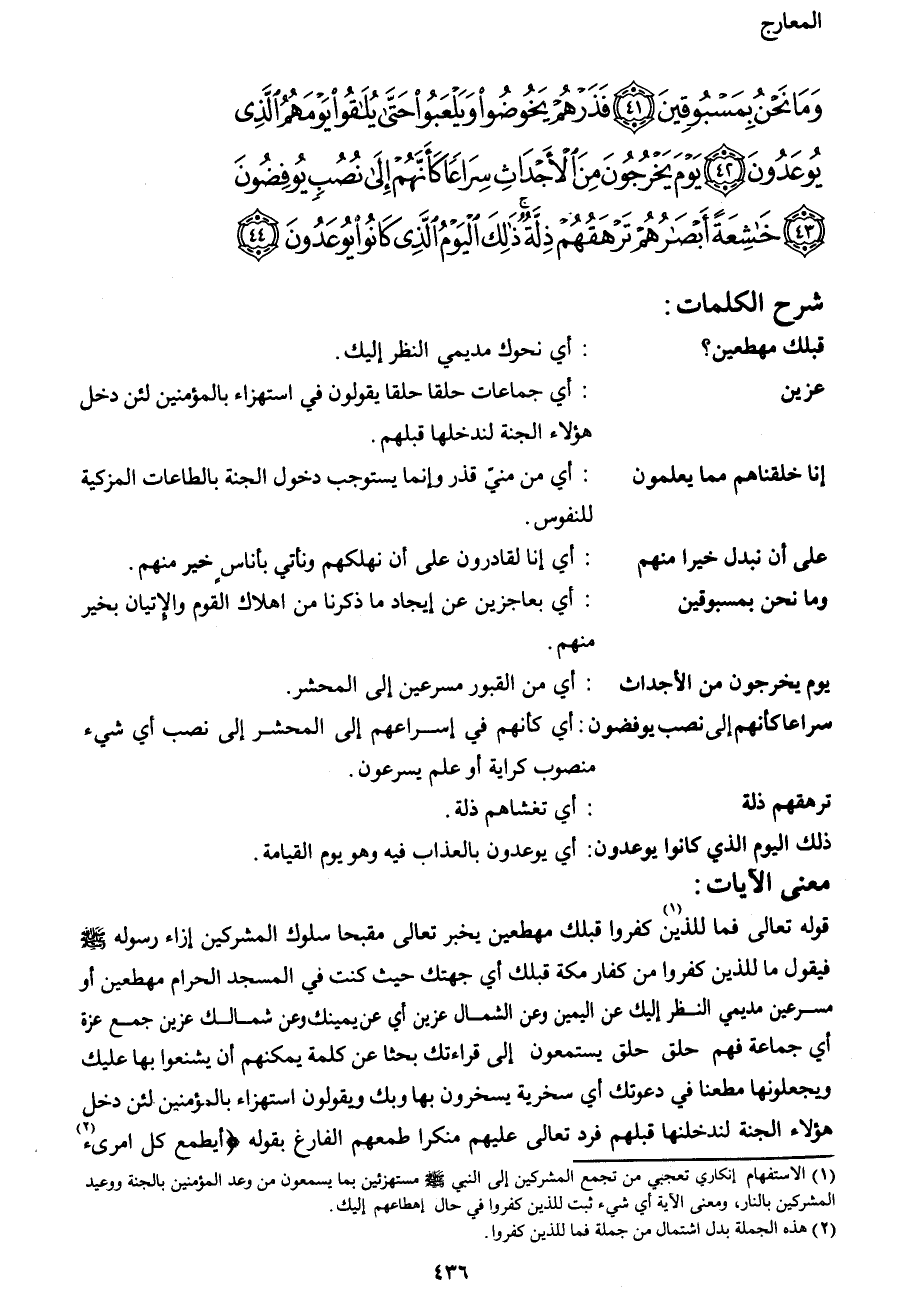 المعارج
وَمَا نَحْنُ بِمَسْبُوقِينَ ﴿٤١﴾ فَذَرْهُمْ يَخُوضُوا۟ وَيَلْعَبُوا۟ حَتَّىٰ يُلَـٰقُوا۟ يَوْمَهُمُ ٱلَّذِى
يُوعَدُونَ ﴿٤٢﴾ يَوْمَ يَخْرُجُونَ مِنَ ٱلْأَجْدَاثِ سِرَاعًا كَأَنَّهُمْ إِلَىٰ نُصُبٍ يُوفِضُونَ
﴿٤٣﴾ خَـٰشِعَةً أَبْصَـٰرُهُمْ تَرْهَقُهُمْ ذِلَّةٌ ۚ ذَٰلِكَ ٱلْيَوْمُ ٱلَّذِى كَانُوا۟ يُوعَدُونَ ﴿٤٤﴾
شرح الكلمات :
قبلك مهطعين؟ : أي نحوك مديمي النظر إليك.
عزين : أي جماعات حلقا حلقا يقولون في استهزاء بالمؤمنين لئن دخل
هؤلاء الجنة لندخلها قبلهم.
إنا خلقناهم مما يعلمون : أي من منيّ قذر وإنما يستوجب دخول الجنة بالطاعات المزكية
للنفوس.
على أن نبدل خيرا منهم : أي إنا لقادرون على أن نهلكهم ونأتي بأناسٍ خير منهم.
وما نحن بمسبوقين : أي بعاجزين عن إيجاد ما ذكرنا من اهلاك القوم والإتيان بخير
منهم.
يوم يخرجون من الأجداث : أي من القبور مسرعين إلى المحشر.
سراعا كأنهم إلى نصب يوفضون : أي كأنهم في إسراعهم إلى المحشر إلى نصب أي شيء
منصوب كراية أو علم يسرعون.
ترهقهم ذلة : أي تغشاهم ذلة.
ذلك اليوم الذي كانوا يوعدون: أي يوعدون بالعذاب فيه وهو يوم القيامة.
معنى الآيات :
قوله تعالى فما للذين(١) كفروا قبلك مهطعين يخبر تعالى مقبحا سلوك المشركين إزاء رسوله ﷺ
فيقول ما للذين كفروا من كفار مكة قبلك أي جهتك حيث كنت في المسجد الحرام مهطعين أو
مسرعين مديمي النظر إليك عن اليمين وعن الشمال عزين أي عن يمينك وعن شمالك عزين جمع عزة
أي جماعة فهم حلق حلق يستمعون إلى قراءتك بحثا عن كلمة يمكنهم أن يشنعوا بها عليك
ويجعلونها مطعنا في دعوتك أي سخرية يسخرون بها وبك ويقولون استهزاء بالمؤمنين لئن دخل
هؤلاء الجنة لندخلنها قبلهم فرد تعالى عليهم منكرا طمعهم الفارغ بقوله ﴿أيطمع كل امرىء(٢)
(١) الاستفهام إنكاري تعجبي من تجمع المشركين إلى النبي ﷺ مستهزئين بما يسمعون من وعد المؤمنين بالجنة ووعيد
المشركين بالنار، ومعنى الآية أي شيء ثبت للذين كفروا في حال إهطاعهم إليك.
(٢) هذه الجملة بدل اشتمال من جملة فما للذين كفروا.
٤٣٦